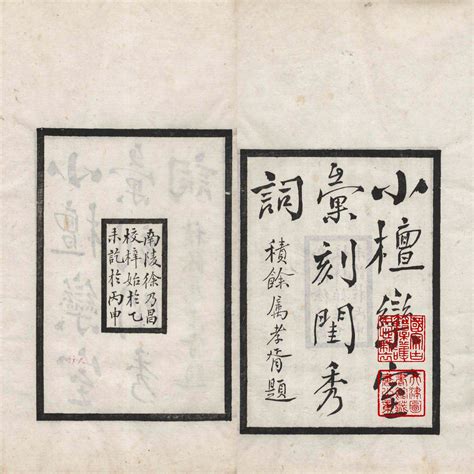 小檀欒室
彙刻閨秀
詞
積餘属孝胥題
南陵徐乃昌
校梓始於乙
未訖於丙申